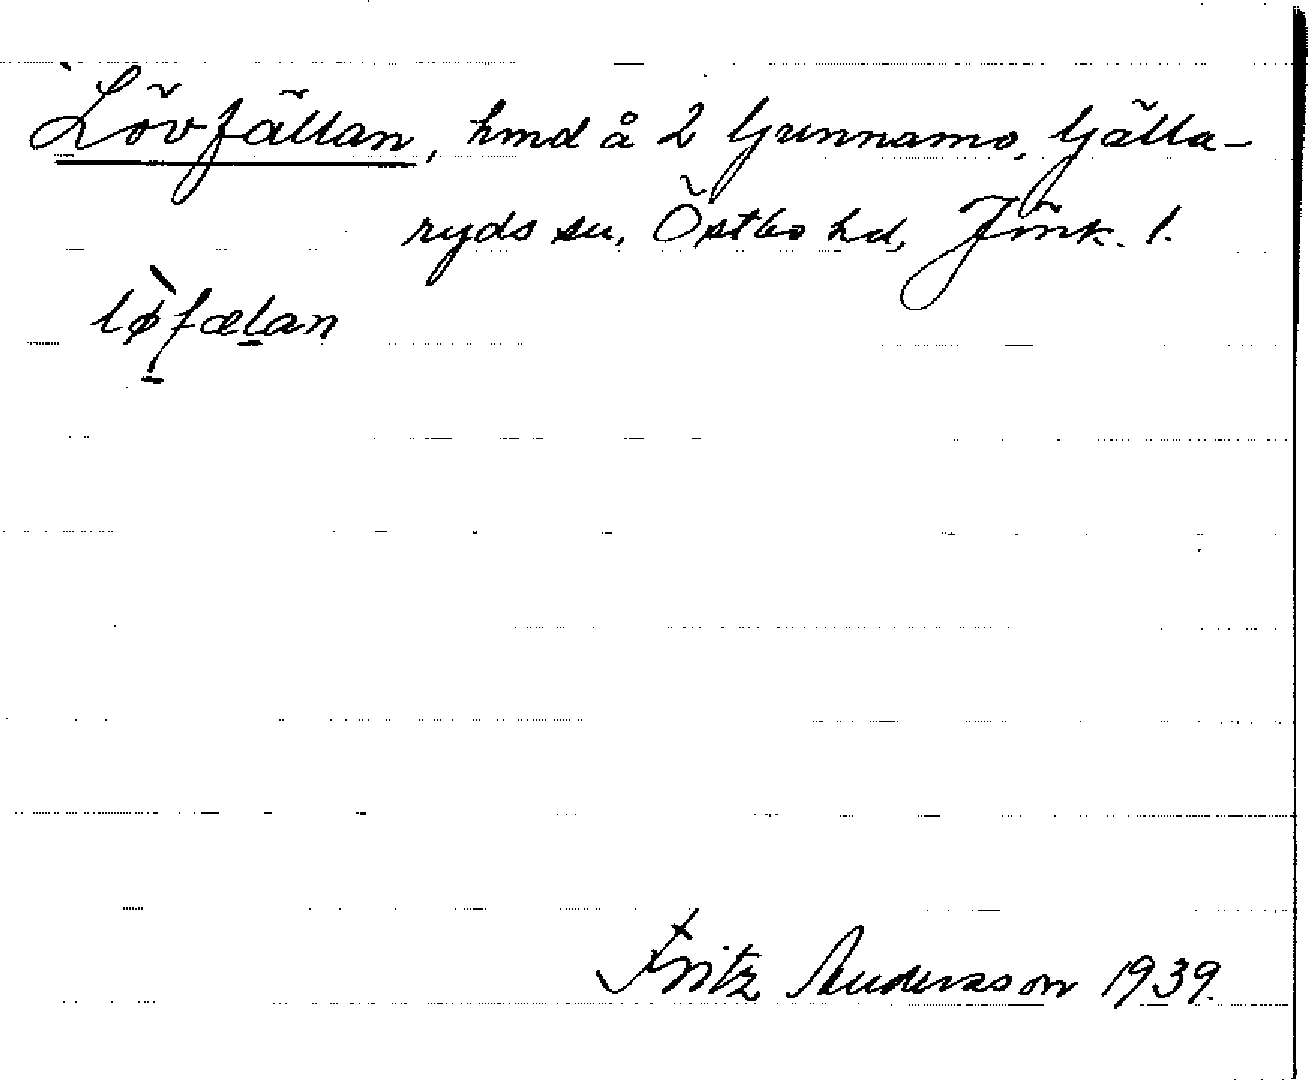 Lövfällan, hmd å 2 Gunnamo, Gälla-
ryds sn, Östbo hd, Jönk. l.
løfælan
Fritz Andersson 1939.